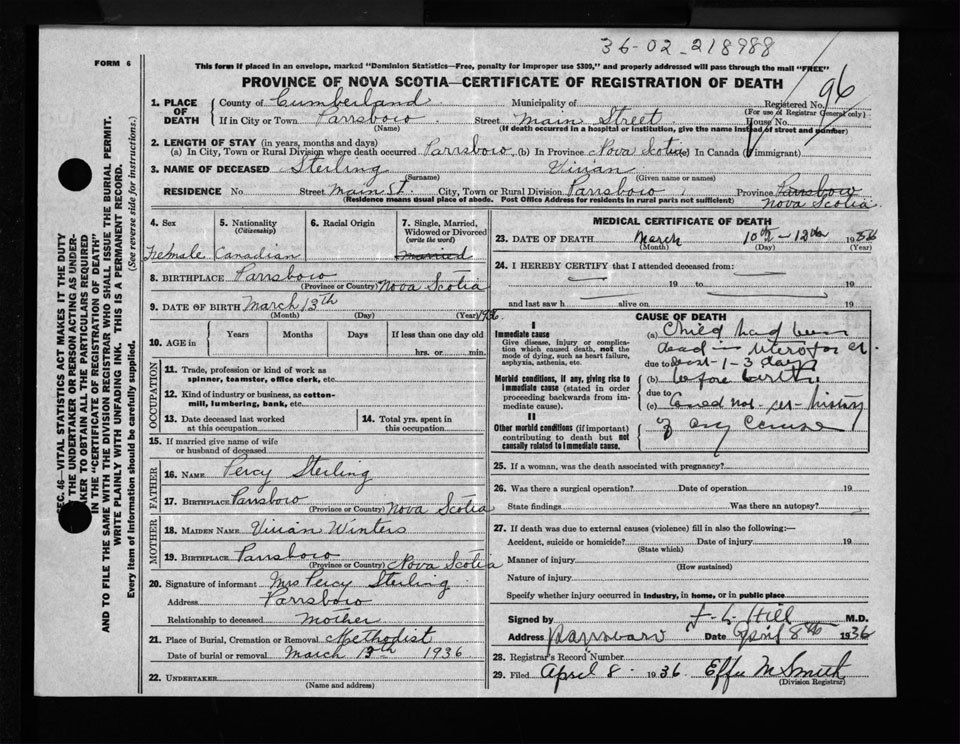 36-02-218988
FORM 6
This form if placed in an envelope, marked "Dominion Statistics—Free, penalty for improper use $300," and properly addressed will pass through the mail "FREE"
PROVINCE OF NOVA SCOTIA—CERTIFICATE OF REGISTRATION OF DEATH
96
1. PLACE OF DEATH
County of Cumberland Municipality of Registered No.
(For use of Registrar General only)
If in City or Town Parrsboro Street Main Street House No.
(Name) (If death occurred in a hospital or institution, give the name instead of street and number)
2. LENGTH OF STAY (in years, months and days)
(a) In City, Town or Rural Division where death occurred Parrsboro (b) In Province Nova Scotia (c) In Canada (if immigrant)
3. NAME OF DECEASED Sterling Vivian
(Surname) (Given name or names)
RESIDENCE No. Street Main St. City, Town or Rural Division Parrsboro Province Parrsboro
(Residence means usual place of abode. Post Office Address for residents in rural parts not sufficient) Nova Scotia
4. Sex
Female
5. Nationality
(Citizenship)
Canadian
6. Racial Origin
7. Single, Married, Widowed or Divorced
(write the word)
Married
8. BIRTHPLACE Parrsboro
(Province or Country) Nova Scotia
9. DATE OF BIRTH March 13th 1936
(Month) (Day) (Year)
10. AGE in Years Months Days If less than one day old
hrs. or min.
OCCUPATION
11. Trade, profession or kind of work as
spinner, teamster, office clerk, etc.
12. Kind of industry or business, as cotton-
mill, lumbering, bank, etc.
13. Date deceased last worked
at this occupation
14. Total yrs. spent in
this occupation
15. If married give name of wife
or husband of deceased
FATHER
16. NAME Percy Sterling
17. BIRTHPLACE Parrsboro
(Province or Country) Nova Scotia
MOTHER
18. MAIDEN NAME Vivian Winters
19. BIRTHPLACE Parrsboro
(Province or Country) Nova Scotia
20. Signature of informant Mrs Percy Sterling
Address Parrsboro
Relationship to deceased Mother
21. Place of Burial, Cremation or Removal Methodist
Date of burial or removal March 13th 1936
22. UNDERTAKER
(Name and address)
MEDICAL CERTIFICATE OF DEATH
23. DATE OF DEATH March 10th - 12th 1936
(Month) (Day) (Year)
24. I HEREBY CERTIFY that I attended deceased from:
19 to 19
and last saw h alive on 19
CAUSE OF DEATH
I
Immediate cause
Give disease, injury or complication which caused death, not the mode of dying, such as heart failure, asphyxia, asthenia, etc.
(a) Child had been
dead in utero for at
due to least 1-3 days
Morbid conditions, if any, giving rise to immediate cause (stated in order proceeding backwards from immediate cause).
(b) before birth
due to
(c) Could not history
II
Other morbid conditions (if important) contributing to death but not causally related to immediate cause.
of any cause
25. If a woman, was the death associated with pregnancy?
26. Was there a surgical operation? Date of operation 19
State findings Was there an autopsy?
27. If death was due to external causes (violence) fill in also the following:—
Accident, suicide or homicide? Date of injury 19
(State which)
Manner of injury
(How sustained)
Nature of injury
Specify whether injury occurred in industry, in home, or in public place
Signed by Hill M.D.
Address Date April 8th 1936
28. Registrar's Record Number
29. Filed April 8 1936 Effie M Smith
(Division Registrar)
SEC. 46—VITAL STATISTICS ACT MAKES IT THE DUTY
OF THE UNDERTAKER OR PERSON ACTING AS UNDER-
TAKER TO OBTAIN ALL THE PARTICULARS REQUIRED
IN THE "CERTIFICATE OF REGISTRATION OF DEATH"
AND TO FILE THE SAME WITH THE DIVISION REGISTRAR WHO SHALL ISSUE THE BURIAL PERMIT.
WRITE PLAINLY WITH UNFADING INK. THIS IS A PERMANENT RECORD.
Every item of information should be carefully supplied. (See reverse side for instructions.)